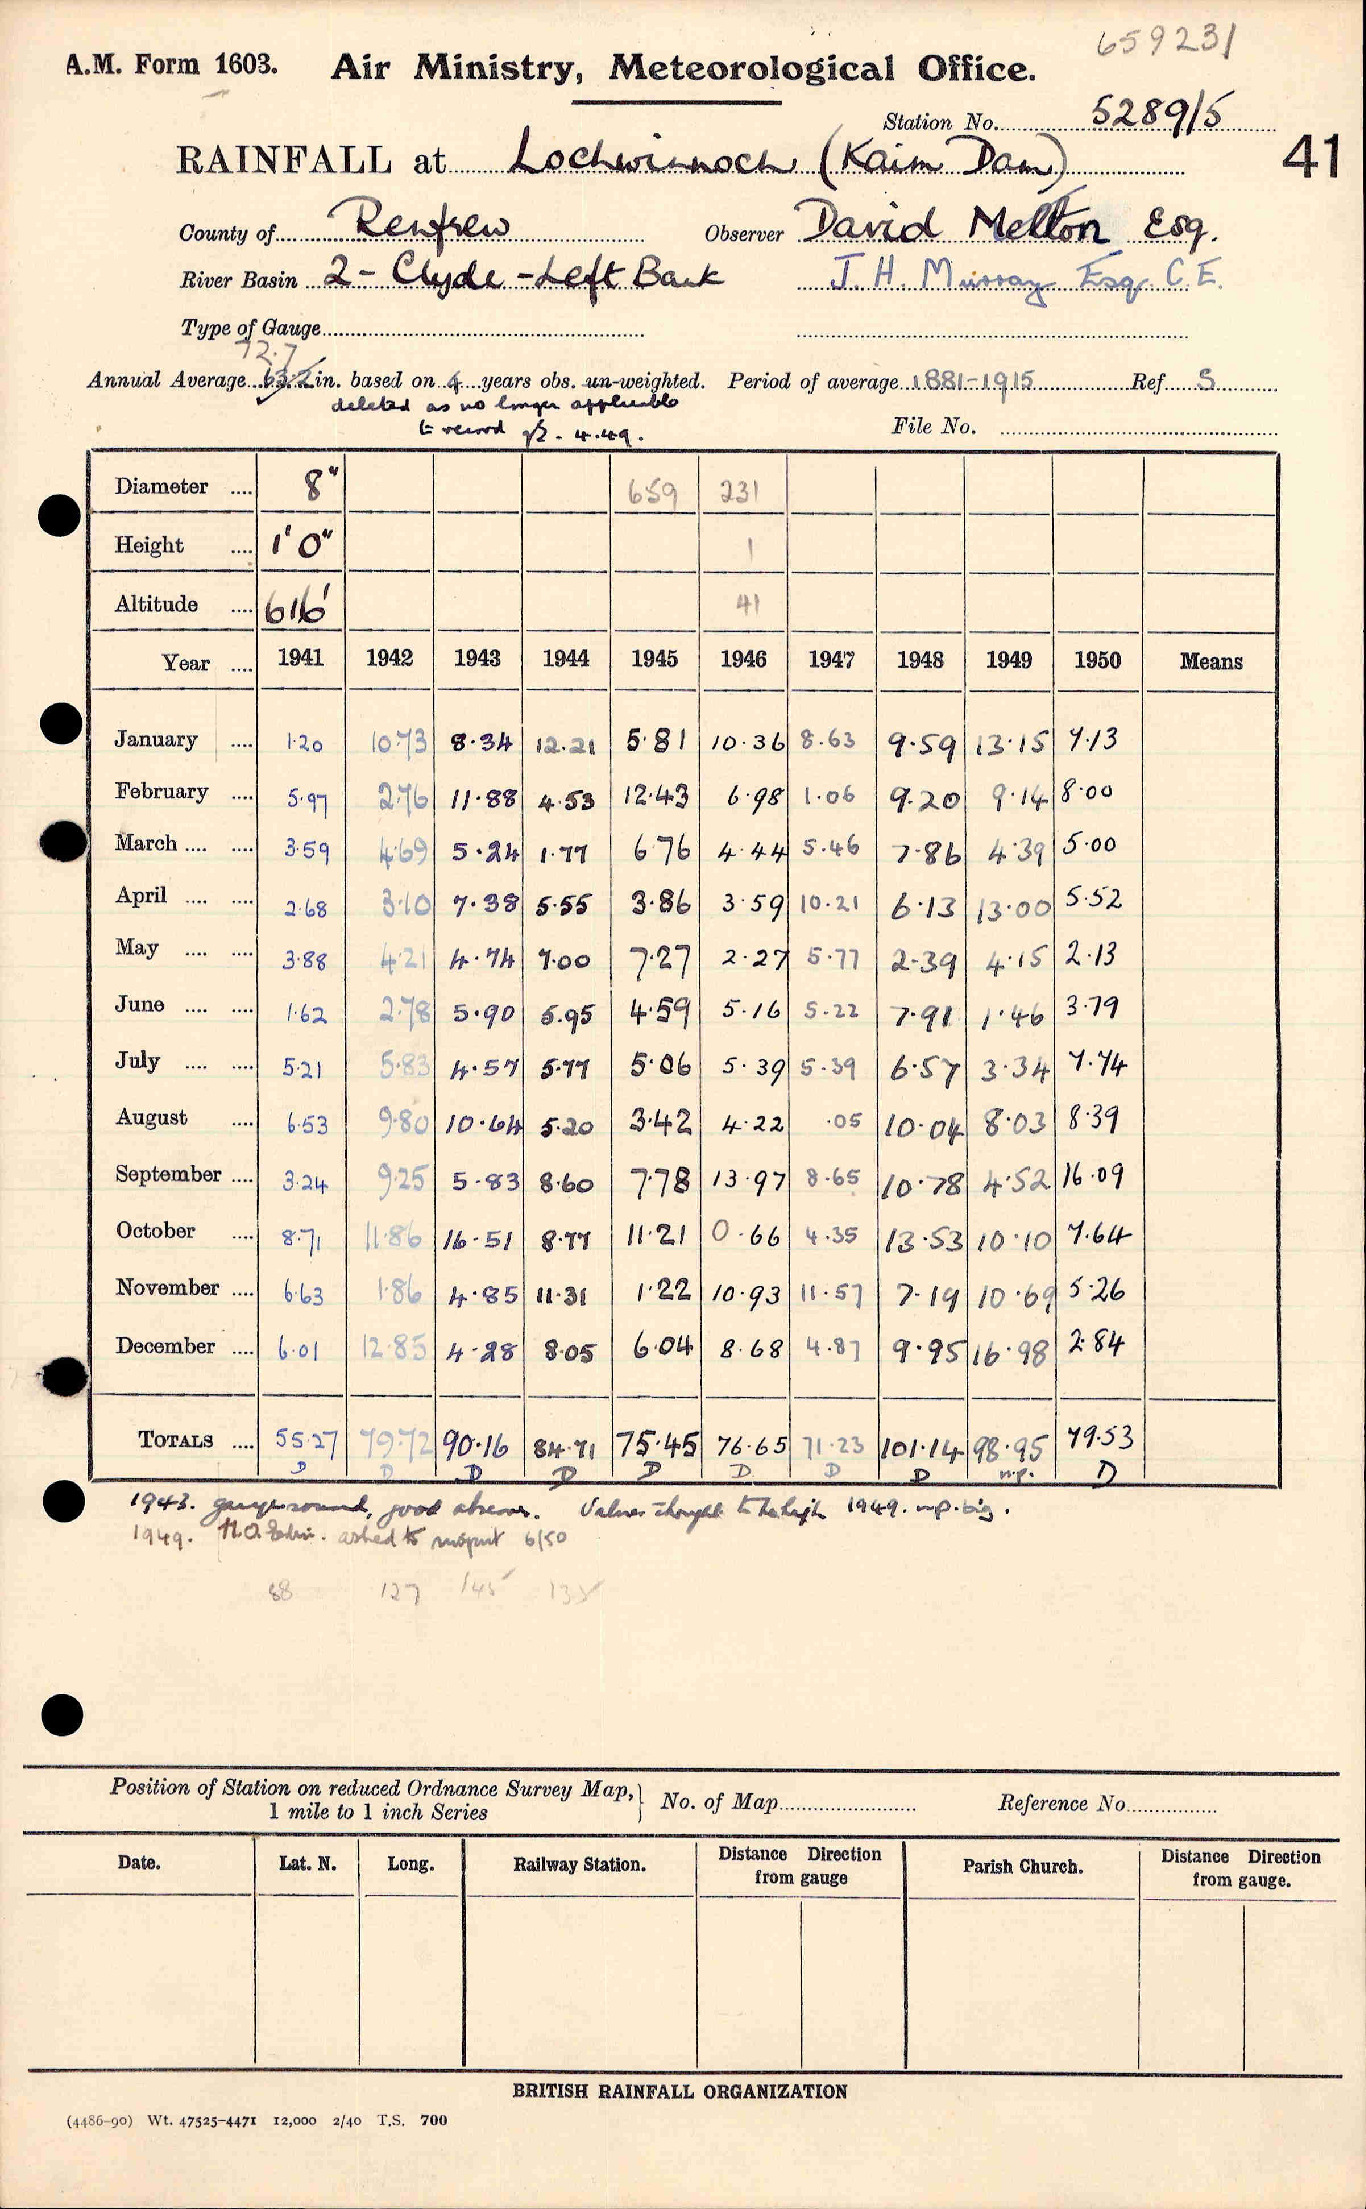 659231
A.M. Form 1603. Air Ministry, Meteorological Office.
Station No. 5289/5
RAINFALL at Lochwinnoch (Kaim Dam)
41
County of Renfrew Observer David Melton Esq.
River Basin 2 - Clyde - Left Bank J. H. Murray Esq. C.E.
Type of Gauge
72.7
Annual Average 63.2 in. based on 4 years obs. un-weighted. Period of average 1881-1915 Ref S
deleted as no longer applicable
to record 4.49.
File No.
Diameter .... 8" 659 231
Height .... 1' 0" 1
Altitude .... 616' 41
Year .... 1941 1942 1943 1944 1945 1946 1947 1948 1949 1950 Means
January .... 1.20 10.73 8.34 12.21 5.81 10.36 8.63 9.59 13.15 7.13
February .... 5.97 2.76 11.88 4.53 12.43 6.98 1.06 9.20 9.14 8.00
March .... .... 3.59 4.69 5.24 1.77 6.76 4.44 5.46 7.86 4.39 5.00
April .... .... 2.68 3.10 7.38 5.55 3.86 3.59 10.21 6.13 13.00 5.52
May .... .... 3.88 4.21 4.74 7.00 7.27 2.27 5.77 2.39 4.15 2.13
June .... .... 1.62 2.78 5.90 5.95 4.59 5.16 5.22 7.91 1.46 3.79
July .... .... 5.21 5.83 4.57 5.77 5.06 5.39 5.39 6.57 3.34 7.74
August .... 6.53 9.80 10.64 5.20 3.42 4.22 .05 10.04 8.03 8.39
September .... 3.24 9.25 5.83 8.60 7.78 13.97 8.65 10.78 4.52 16.09
October .... 8.71 11.86 16.51 8.77 11.21 0.66 4.35 13.53 10.10 7.64
November .... 6.63 1.86 4.85 11.31 1.22 10.93 11.57 7.19 10.69 5.26
December .... 6.01 12.85 4.28 8.05 6.04 8.68 4.87 9.95 16.98 2.84
TOTALS .... 55.27 79.72 90.16 84.71 75.45 76.65 71.23 101.14 98.95 79.53
D D D D D D D D n.p. D
1943. gauge sound, good observer. Values thought to be high 1949. n.p. big.
1949. M.O. Edin. asked to inspect 6/50
88 127 145 135
Position of Station on reduced Ordnance Survey Map, } No. of Map Reference No.
1 mile to 1 inch Series
Date. Lat. N. Long. Railway Station. Distance Direction from gauge Parish Church. Distance Direction from gauge.
BRITISH RAINFALL ORGANIZATION
(4486-90) Wt. 47525-4471 12,000 2/40 T.S. 700